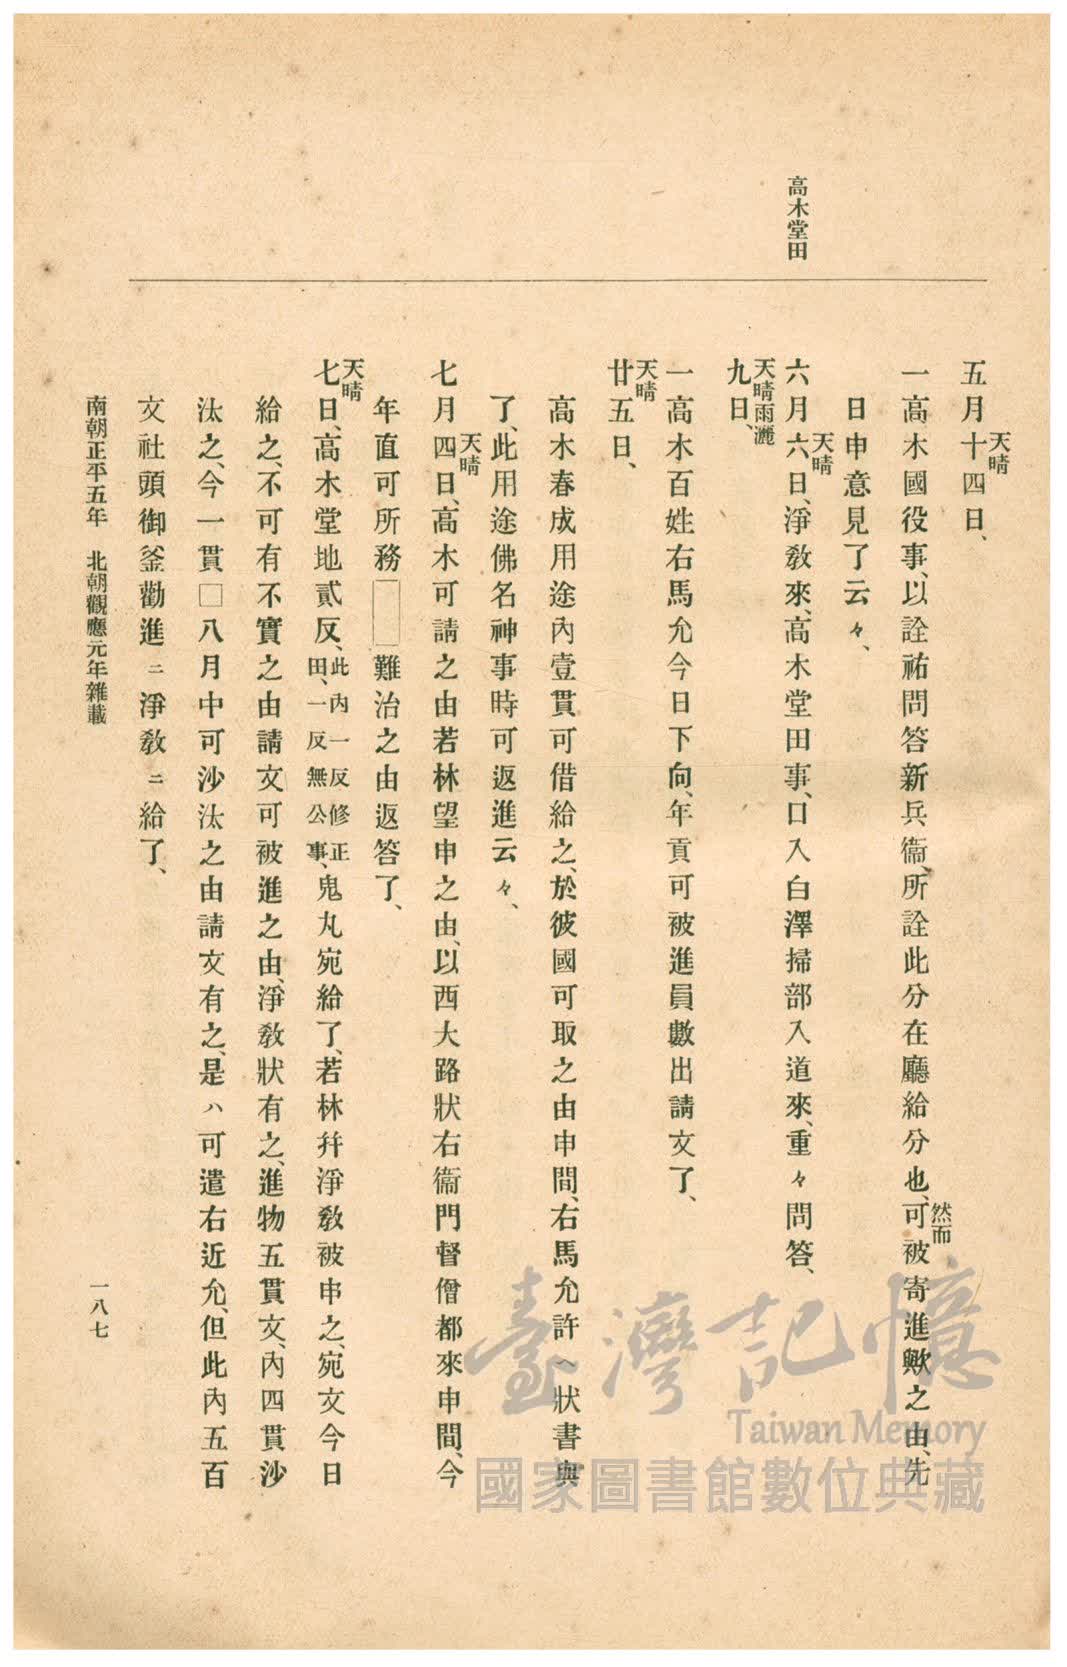 高木堂田
五月十四日、天晴
一高木國役事、以詮祐問答新兵衞、所詮此分在廳給分也、然而可被寄進歟之由、先
日申意見了云々、
六月六日、天晴淨敎來、高木堂田事、口入白澤掃部入道來、重々問答、
九日、天晴雨灑
一高木百姓右馬允今日下向、年貢可被進員數出請文了、
廿五日、天晴
高木春成用途內壹貫可借給之、於彼國可取之由申間、右馬允許ヘ狀書與
了、此用途佛名神事時可返進云々、
七月四日、天晴高木可請之由若林望申之由、以西大路狀右衞門督僧都來申間、今
年直可所務□難治之由返答了、
七日、天晴高木堂地貳反、此內一反修正田、一反無公事、鬼丸宛給了、若林幷淨敎被申之、宛文今日
給之、不可有不實之由請文可被進之由、淨敎狀有之、進物五貫文、內四貫沙
汰之、今一貫□八月中可沙汰之由請文有之、是ハ可遣右近允、但此內五百
文社頭御釜勸進ニ淨敎ニ給了、
南朝正平五年 北朝觀應元年雜載
一八七
臺灣記憶
Taiwan Memory
國家圖書館數位典藏